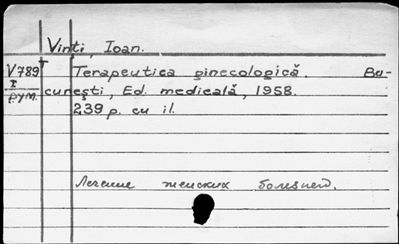 Vinti, Ioan.
V789 I рум.
Terapeutica ginecologică. Bu-
curești, Ed. medicală, 1958.
239 p. cu il.
Лечение женских болезней.